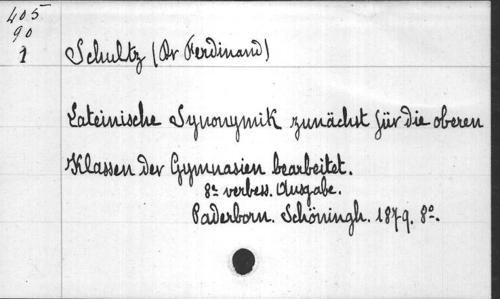 405
90
1
Schultz (Dr Ferdinand)
Lateinische Synonymik zunächst für die oberen
Klassen der Gymnasien bearbeitet.
8e verbess. Ausgabe.
Paderborn. Schöningh. 1879. 8o.